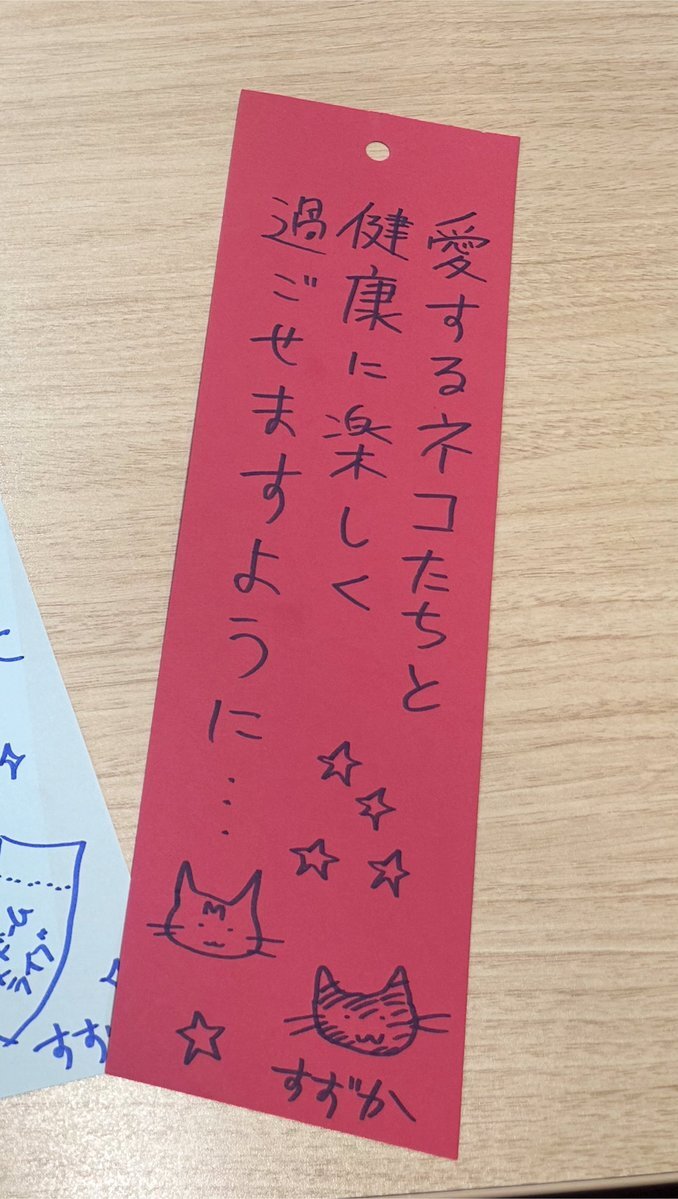 愛するネコたちと
健康に楽しく
過ごせますように…
M
すずか
すず